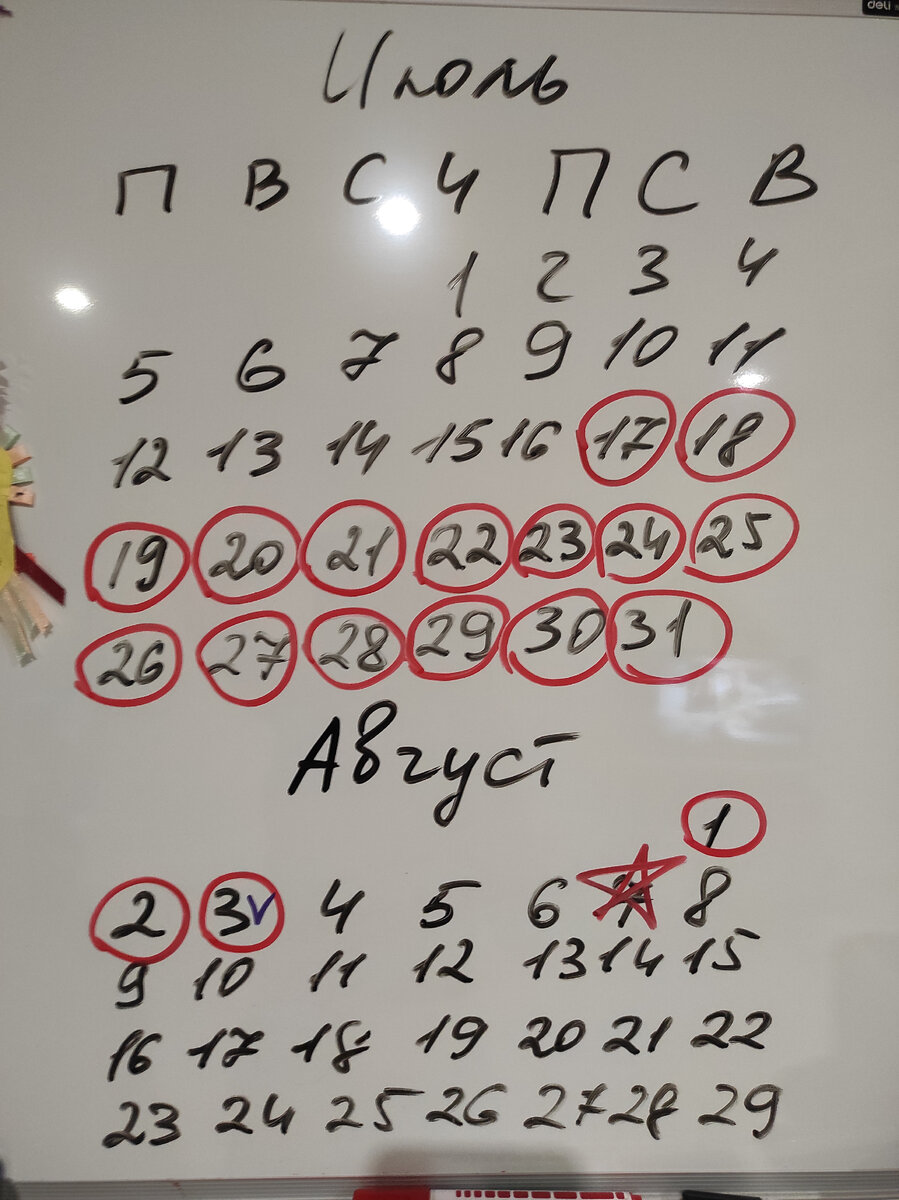 deli
Июль
П В С Ч П С В
1 2 3 4
5 6 7 8 9 10 11
12 13 14 15 16 17 18
19 20 21 22 23 24 25
26 27 28 29 30 31
Август
1
2 3 4 5 6 7 8
9 10 11 12 13 14 15
16 17 18 19 20 21 22
23 24 25 26 27 28 29